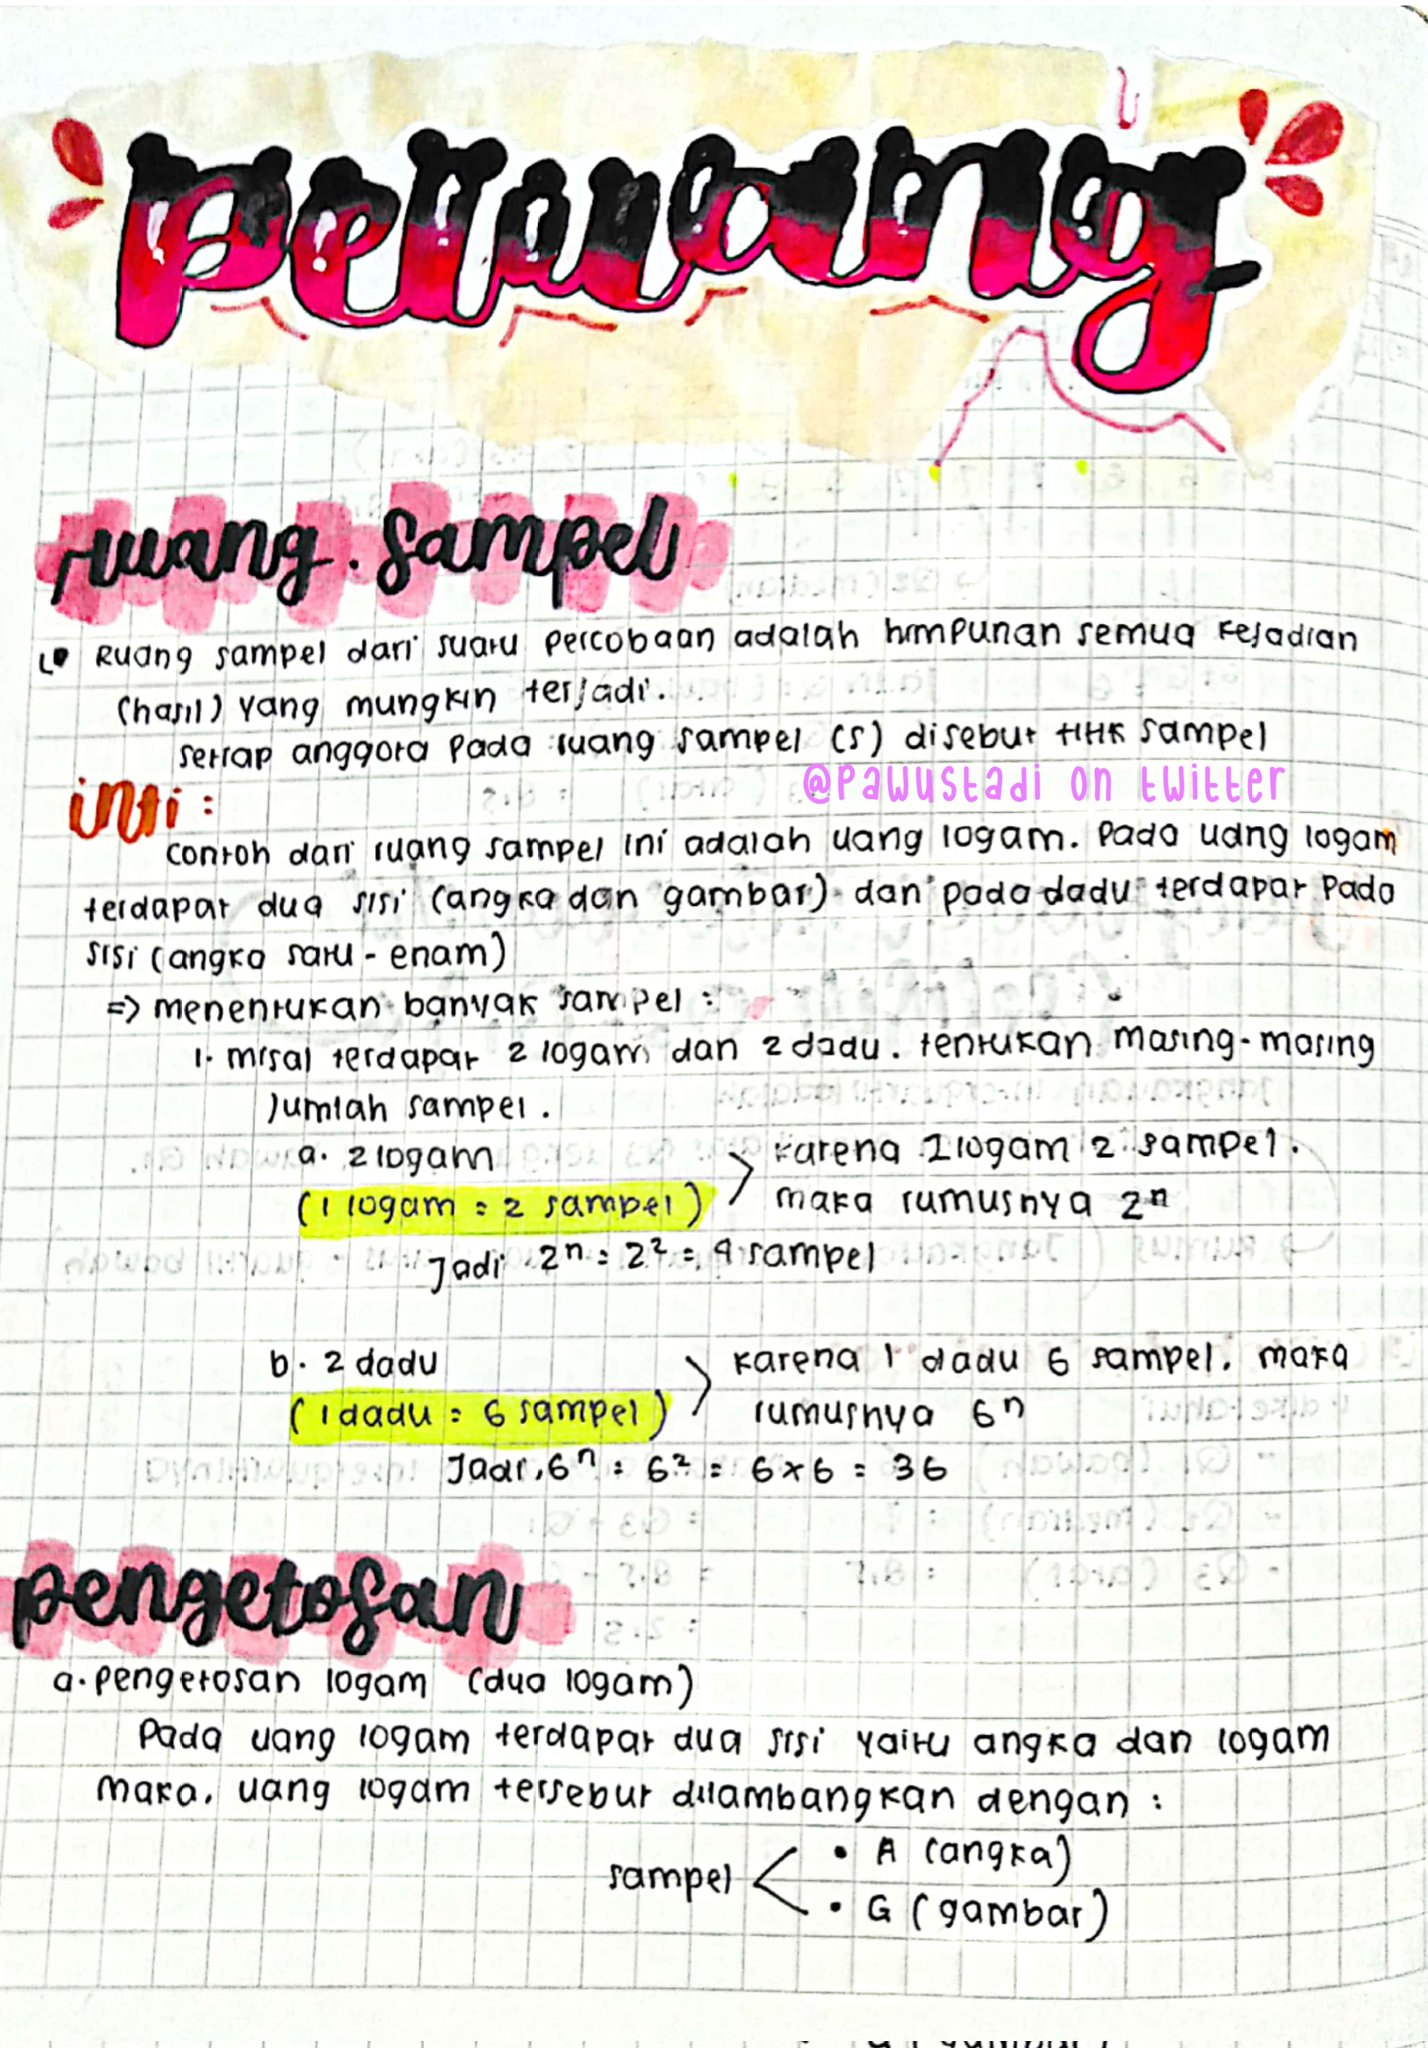 peluang
ruang sampel
Ruang sampel dari suatu percobaan adalah himpunan semua kejadian
(hasil) yang mungkin terjadi.
setiap anggota pada ruang sampel (s) disebut titik sampel
@pawustadi on twitter
inti :
contoh dari ruang sampel ini adalah uang logam. pada uang logam
terdapat dua sisi (angka dan gambar) dan pada dadu terdapat pada
sisi (angka satu - enam)
=> menentukan banyak sampel :
1. misal terdapat 2 logam dan 2 dadu. tentukan masing-masing
jumlah sampel.
a. 2 logam
(1 logam = 2 sampel)
karena 1 logam 2 sampel.
maka rumusnya 2ⁿ
Jadi 2ⁿ = 2² = 4 sampel
b. 2 dadu
(1 dadu = 6 sampel)
karena 1 dadu 6 sampel. maka
rumusnya 6ⁿ
Jadi, 6ⁿ = 6² = 6 x 6 = 36
pengetosan
a. pengetosan logam (dua logam)
Pada uang logam terdapat dua sisi yaitu angka dan logam
maka, uang logam tersebut dilambangkan dengan :
sampel < • A (angka)
• G (gambar)